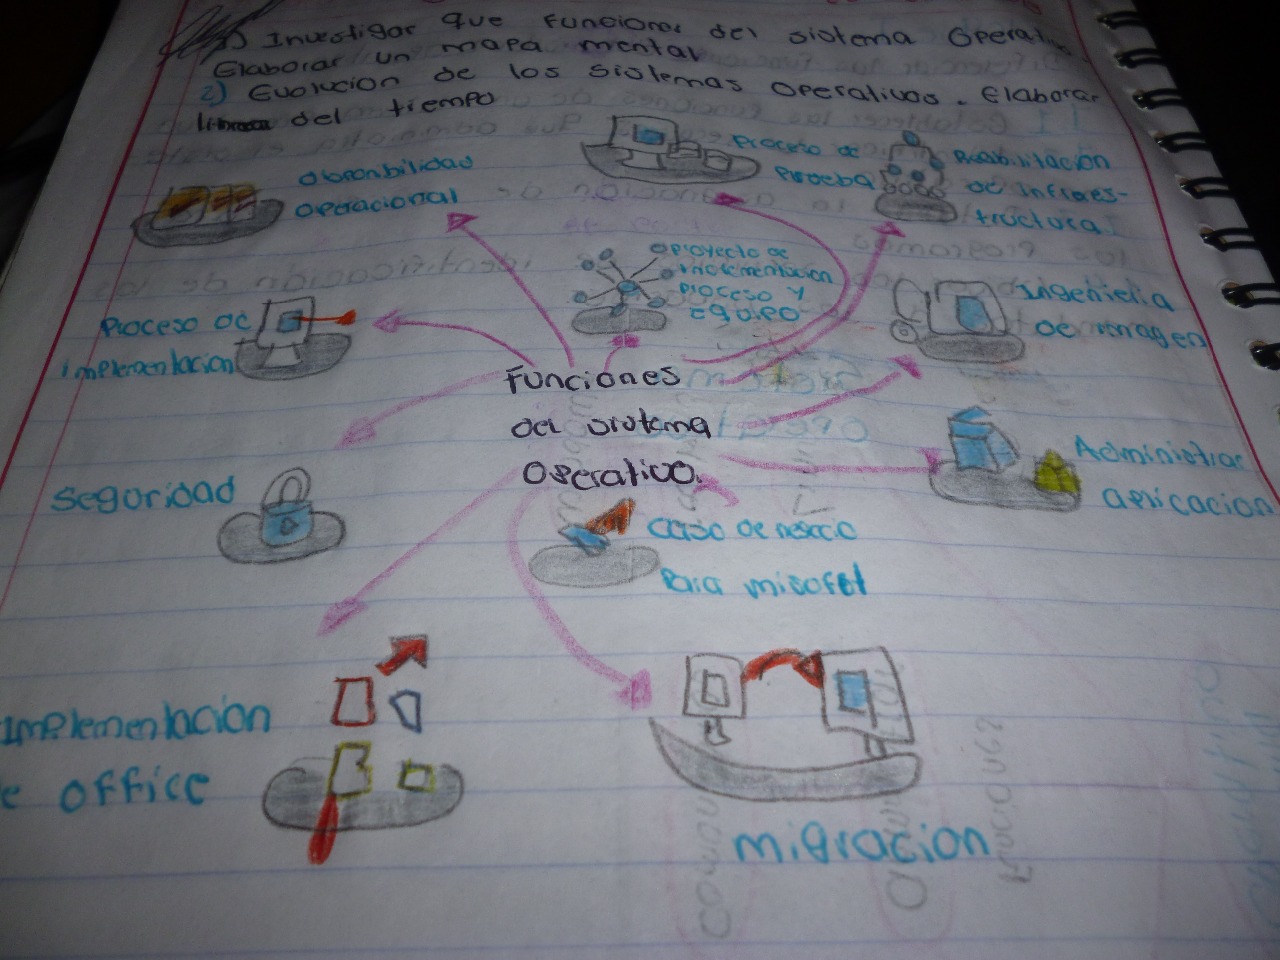 1) Investigar que funciones del sistema Operativo.
Elaborar un mapa mental
2) Evolucion de los sistemas operativos. Elaborar
linea del tiempo
Disponibilidad
operacional
Proceso de
prueba
Reabilitación
de infraes-
tructura.
Proyecto de
implementacion
proceso y
equipo
Proceso de
implementacion
Ingenieria
de imagen
Funciones
del sistema
Operativo.
Seguridad
Administrar
aplicacion
caso de negocio
para misofot
Implementacion
e office
migracion